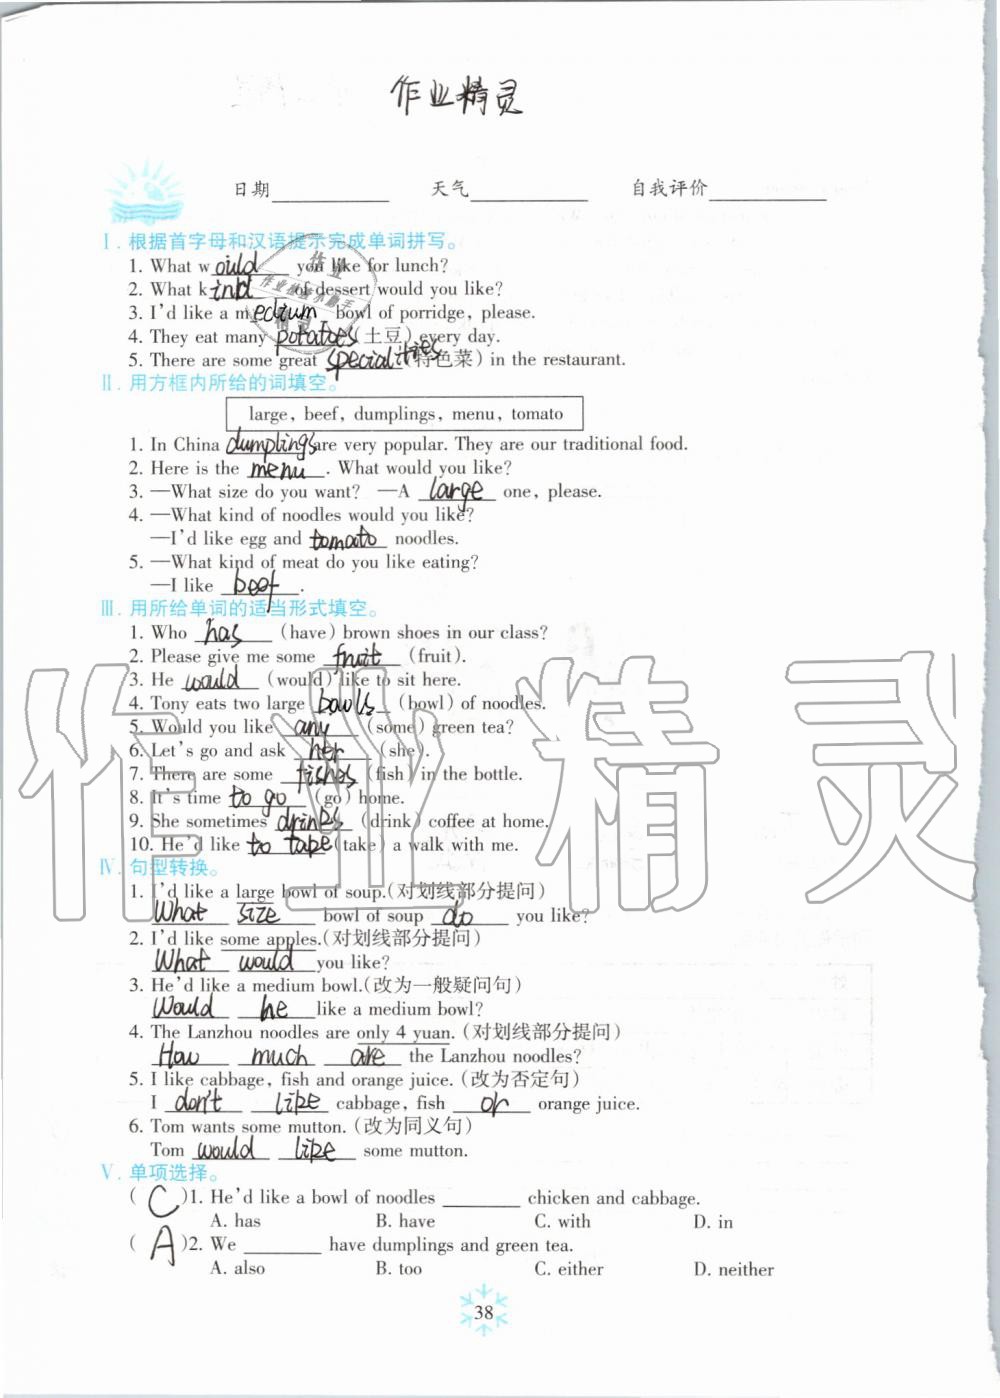 作业精灵
日期 天气 自我评价
Ⅰ. 根据首字母和汉语提示完成单词拼写。
1. What would you like for lunch?
2. What kind of dessert would you like?
3. I'd like a medium bowl of porridge, please.
4. They eat many potatoes (土豆) every day.
5. There are some great specialities (特色菜) in the restaurant.
Ⅱ. 用方框内所给的词填空。
large, beef, dumplings, menu, tomato
1. In China dumplings are very popular. They are our traditional food.
2. Here is the menu. What would you like?
3. —What size do you want? —A large one, please.
4. —What kind of noodles would you like?
—I'd like egg and tomato noodles.
5. —What kind of meat do you like eating?
—I like beef.
Ⅲ. 用所给单词的适当形式填空。
1. Who has (have) brown shoes in our class?
2. Please give me some fruit (fruit).
3. He would (would) like to sit here.
4. Tony eats two large bowls (bowl) of noodles.
5. Would you like any (some) green tea?
6. Let's go and ask her (she).
7. There are some fishes (fish) in the bottle.
8. It's time to go (go) home.
9. She sometimes drinks (drink) coffee at home.
10. He'd like to take (take) a walk with me.
Ⅳ. 句型转换。
1. I'd like a large bowl of soup.(对划线部分提问)
What size bowl of soup do you like?
2. I'd like some apples.(对划线部分提问)
What would you like?
3. He'd like a medium bowl.(改为一般疑问句)
Would he like a medium bowl?
4. The Lanzhou noodles are only 4 yuan. (对划线部分提问)
How much are the Lanzhou noodles?
5. I like cabbage, fish and orange juice. (改为否定句)
I don't like cabbage, fish or orange juice.
6. Tom wants some mutton. (改为同义句)
Tom would like some mutton.
Ⅴ. 单项选择。
( C )1. He'd like a bowl of noodles ________ chicken and cabbage.
A. has B. have C. with D. in
( A )2. We ________ have dumplings and green tea.
A. also B. too C. either D. neither
38
作业精灵